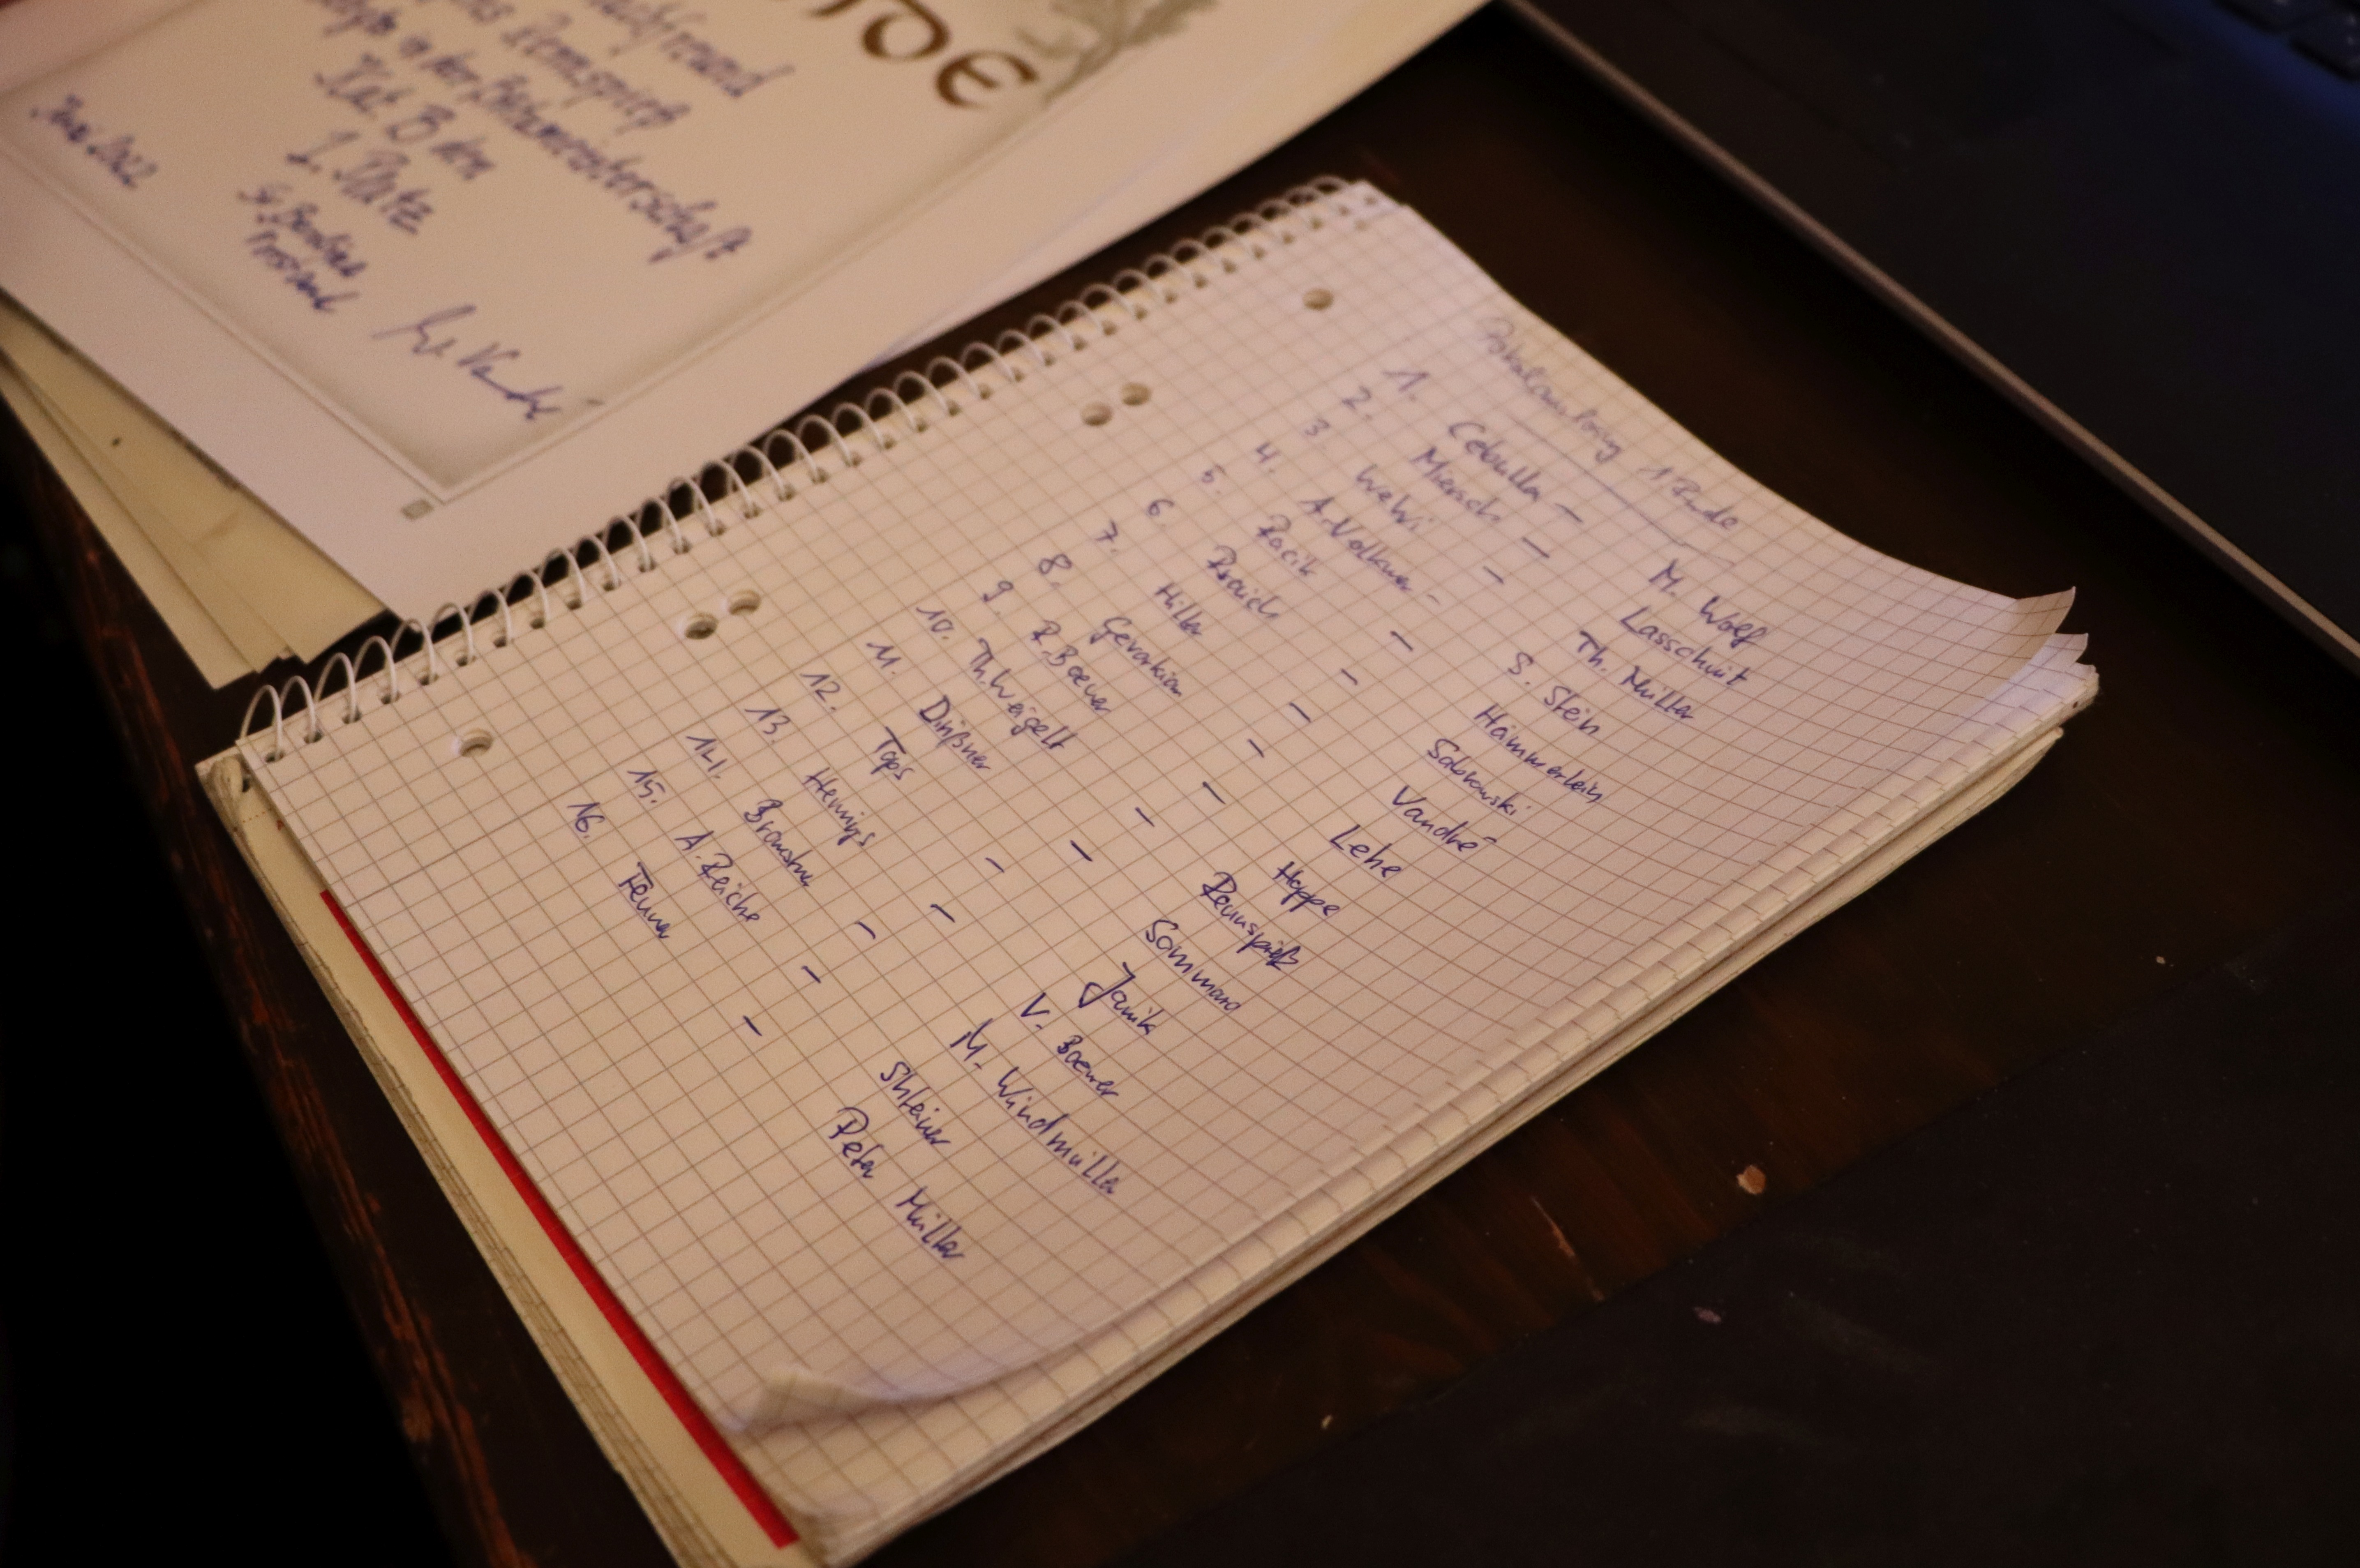 TDE
achfreund
Rennspieß
in der Blitzmeisterschaft
Kat B den
1. Platz
Juni 2022
Pokalauslosung 1 Runde
1. Cebulla – M. Wolf
2. Miersch – Lasschuit
3. Wehr – Th. Müller
4. A. Volkmer – S. Stein
5. Racik – Hämmerlein
6. – Sabrowski
7. Hiller – Vandré
8. Gevorkian – Lehe
9. R. Boewer – Hoppe
10. Th. Weigelt – Rennspieß
11. Dinßner – Sommard
12. Tops – Janik
13. Hennigs – V. Boewer
14. – M. Windmüller
15. A. Reiche – Shteiner
16. – Peter Müller